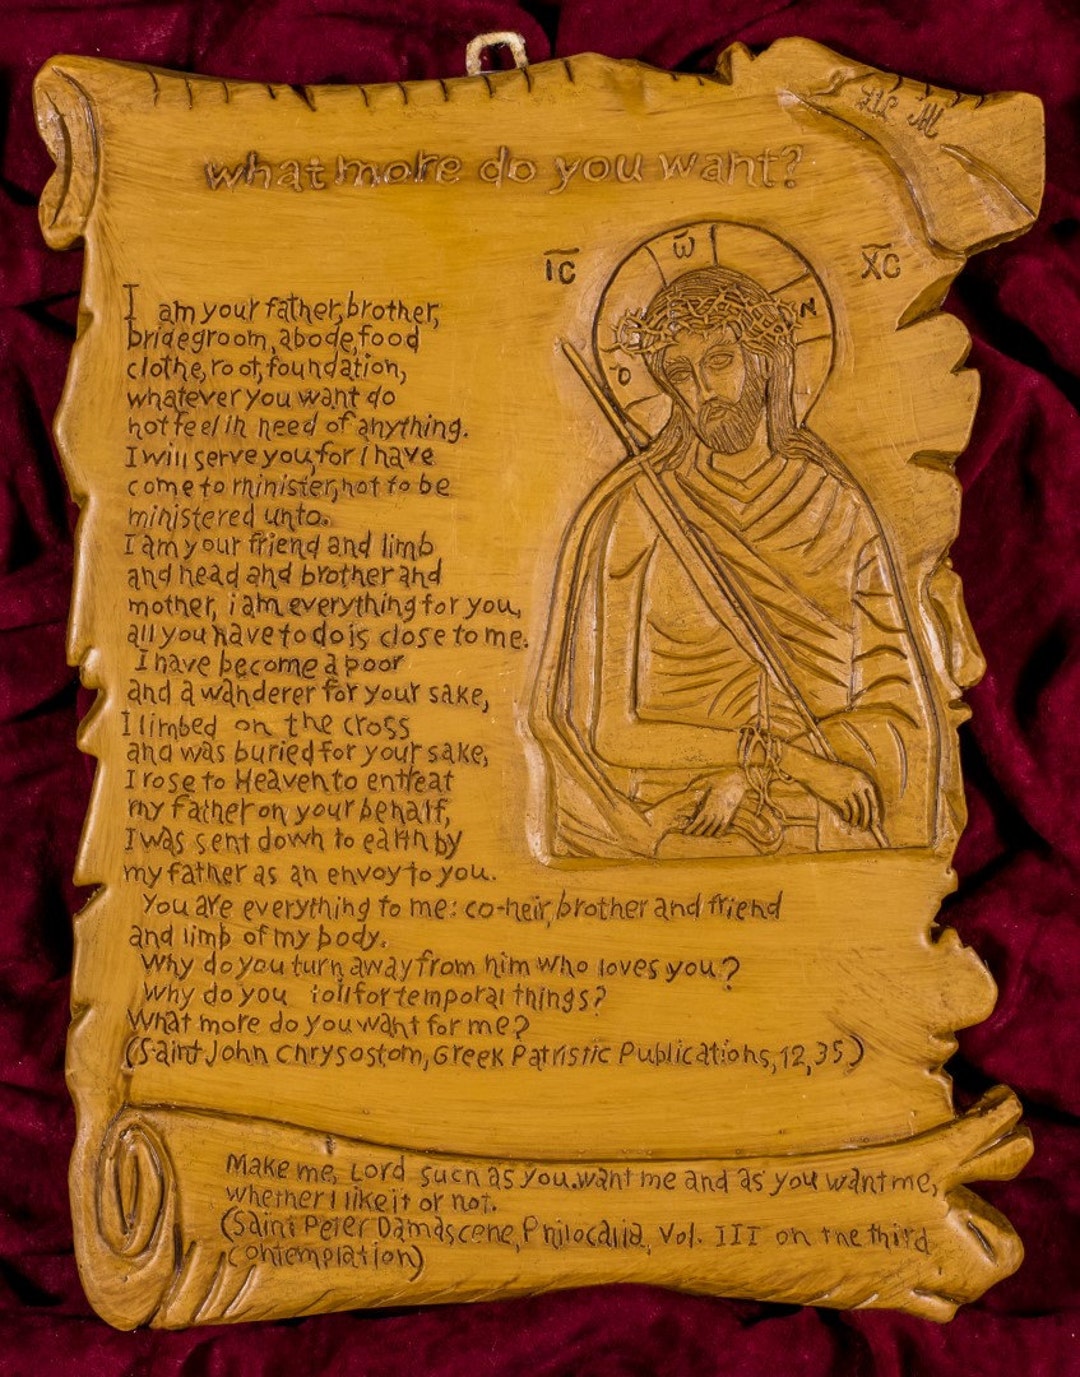 what more do you want?
I͞C
X͞C
ὁ ὤ Ν
I am your father, brother,
bridegroom, abode, food
clothe, root, foundation,
whatever you want do
not feel in need of anything.
I will serve you, for I have
come to minister, not to be
ministered unto.
I am your friend and limb
and head and brother and
mother, i am everything for you,
all you have to do is close to me.
I have become a poor
and a wanderer for your sake,
I limbed on the cross
and was buried for your sake,
I rose to Heaven to entreat
my father on your behalf,
I was sent down to earth by
my father as an envoy to you.
You are everything to me: co-heir, brother and friend
and limb of my body.
Why do you turn away from him who loves you?
Why do you toil for temporal things?
What more do you want for me?
(Saint John Chrysostom, Greek Patristic Publications, 12, 35)
Make me, Lord such as you.want me and as you want me,
whether I like it or not.
(Saint Peter Damascene, Philocalia, Vol. III on the third
contemplation)